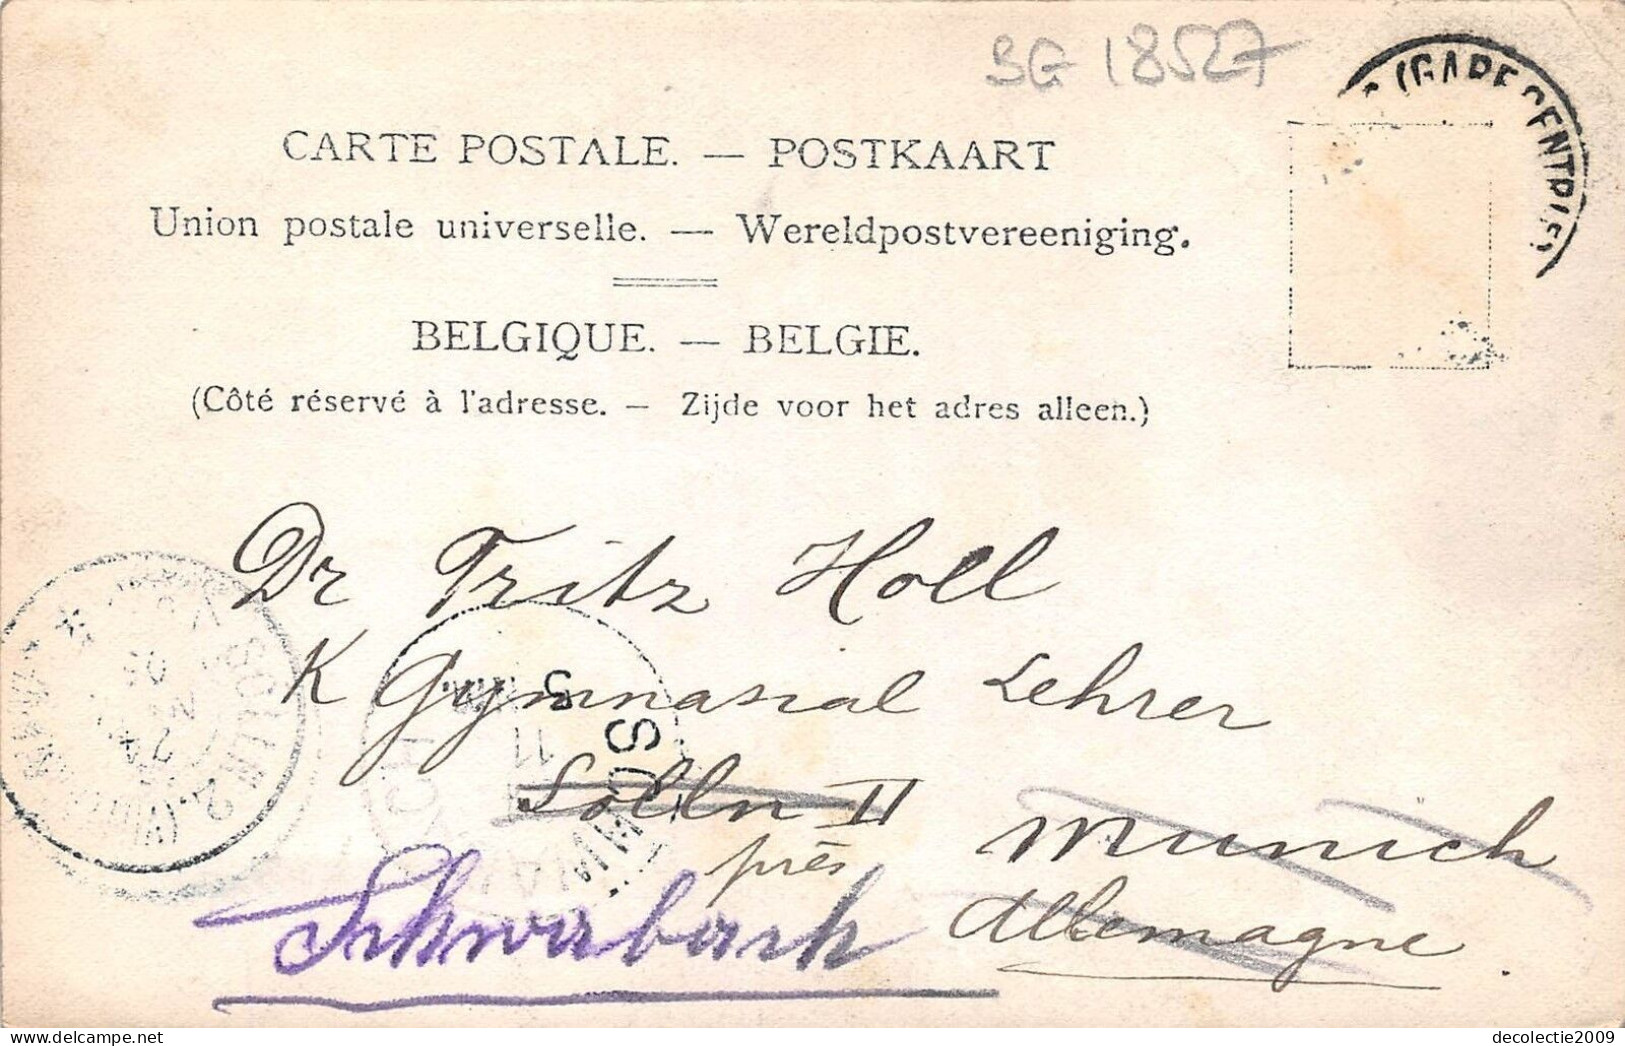 BG 18527
(GARE CENTRALE)
CARTE POSTALE. — POSTKAART
Union postale universelle. — Wereldpostvereeniging.
BELGIQUE. — BELGIE.
(Côté réservé à l'adresse. — Zijde voor het adres alleen.)
Dr Fritz Holl
K Gymnasial Lehrer
Solln II
près Munich
Schwabach Allemagne.
decolectie2009